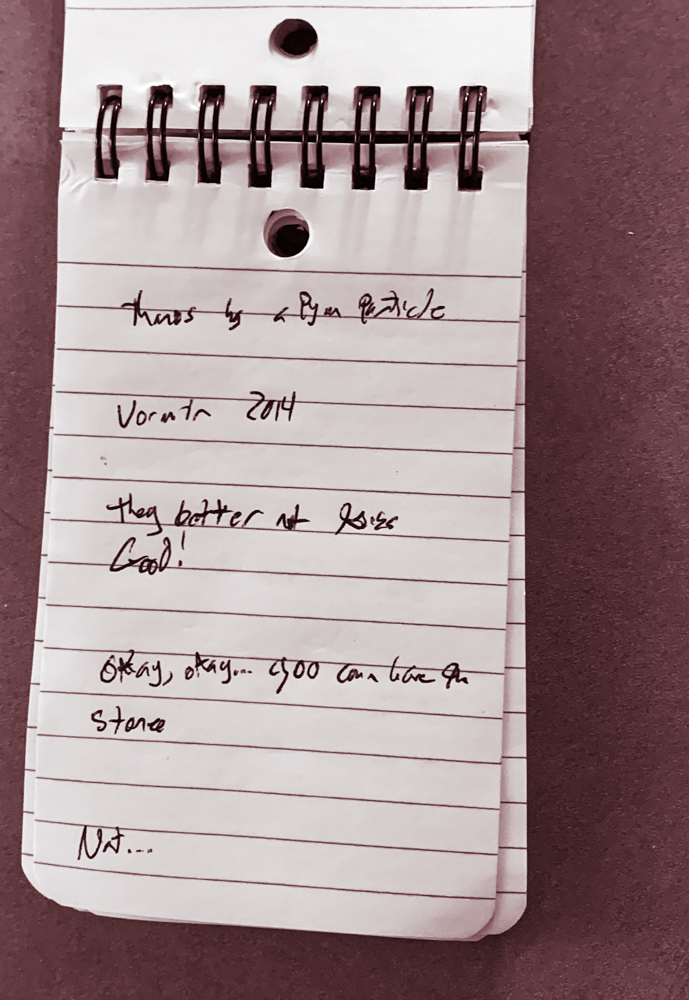 thanos by a Pym Particle
Vormir 2014
they better not
Good!
Okay, okay... you can have the
stone
Not...